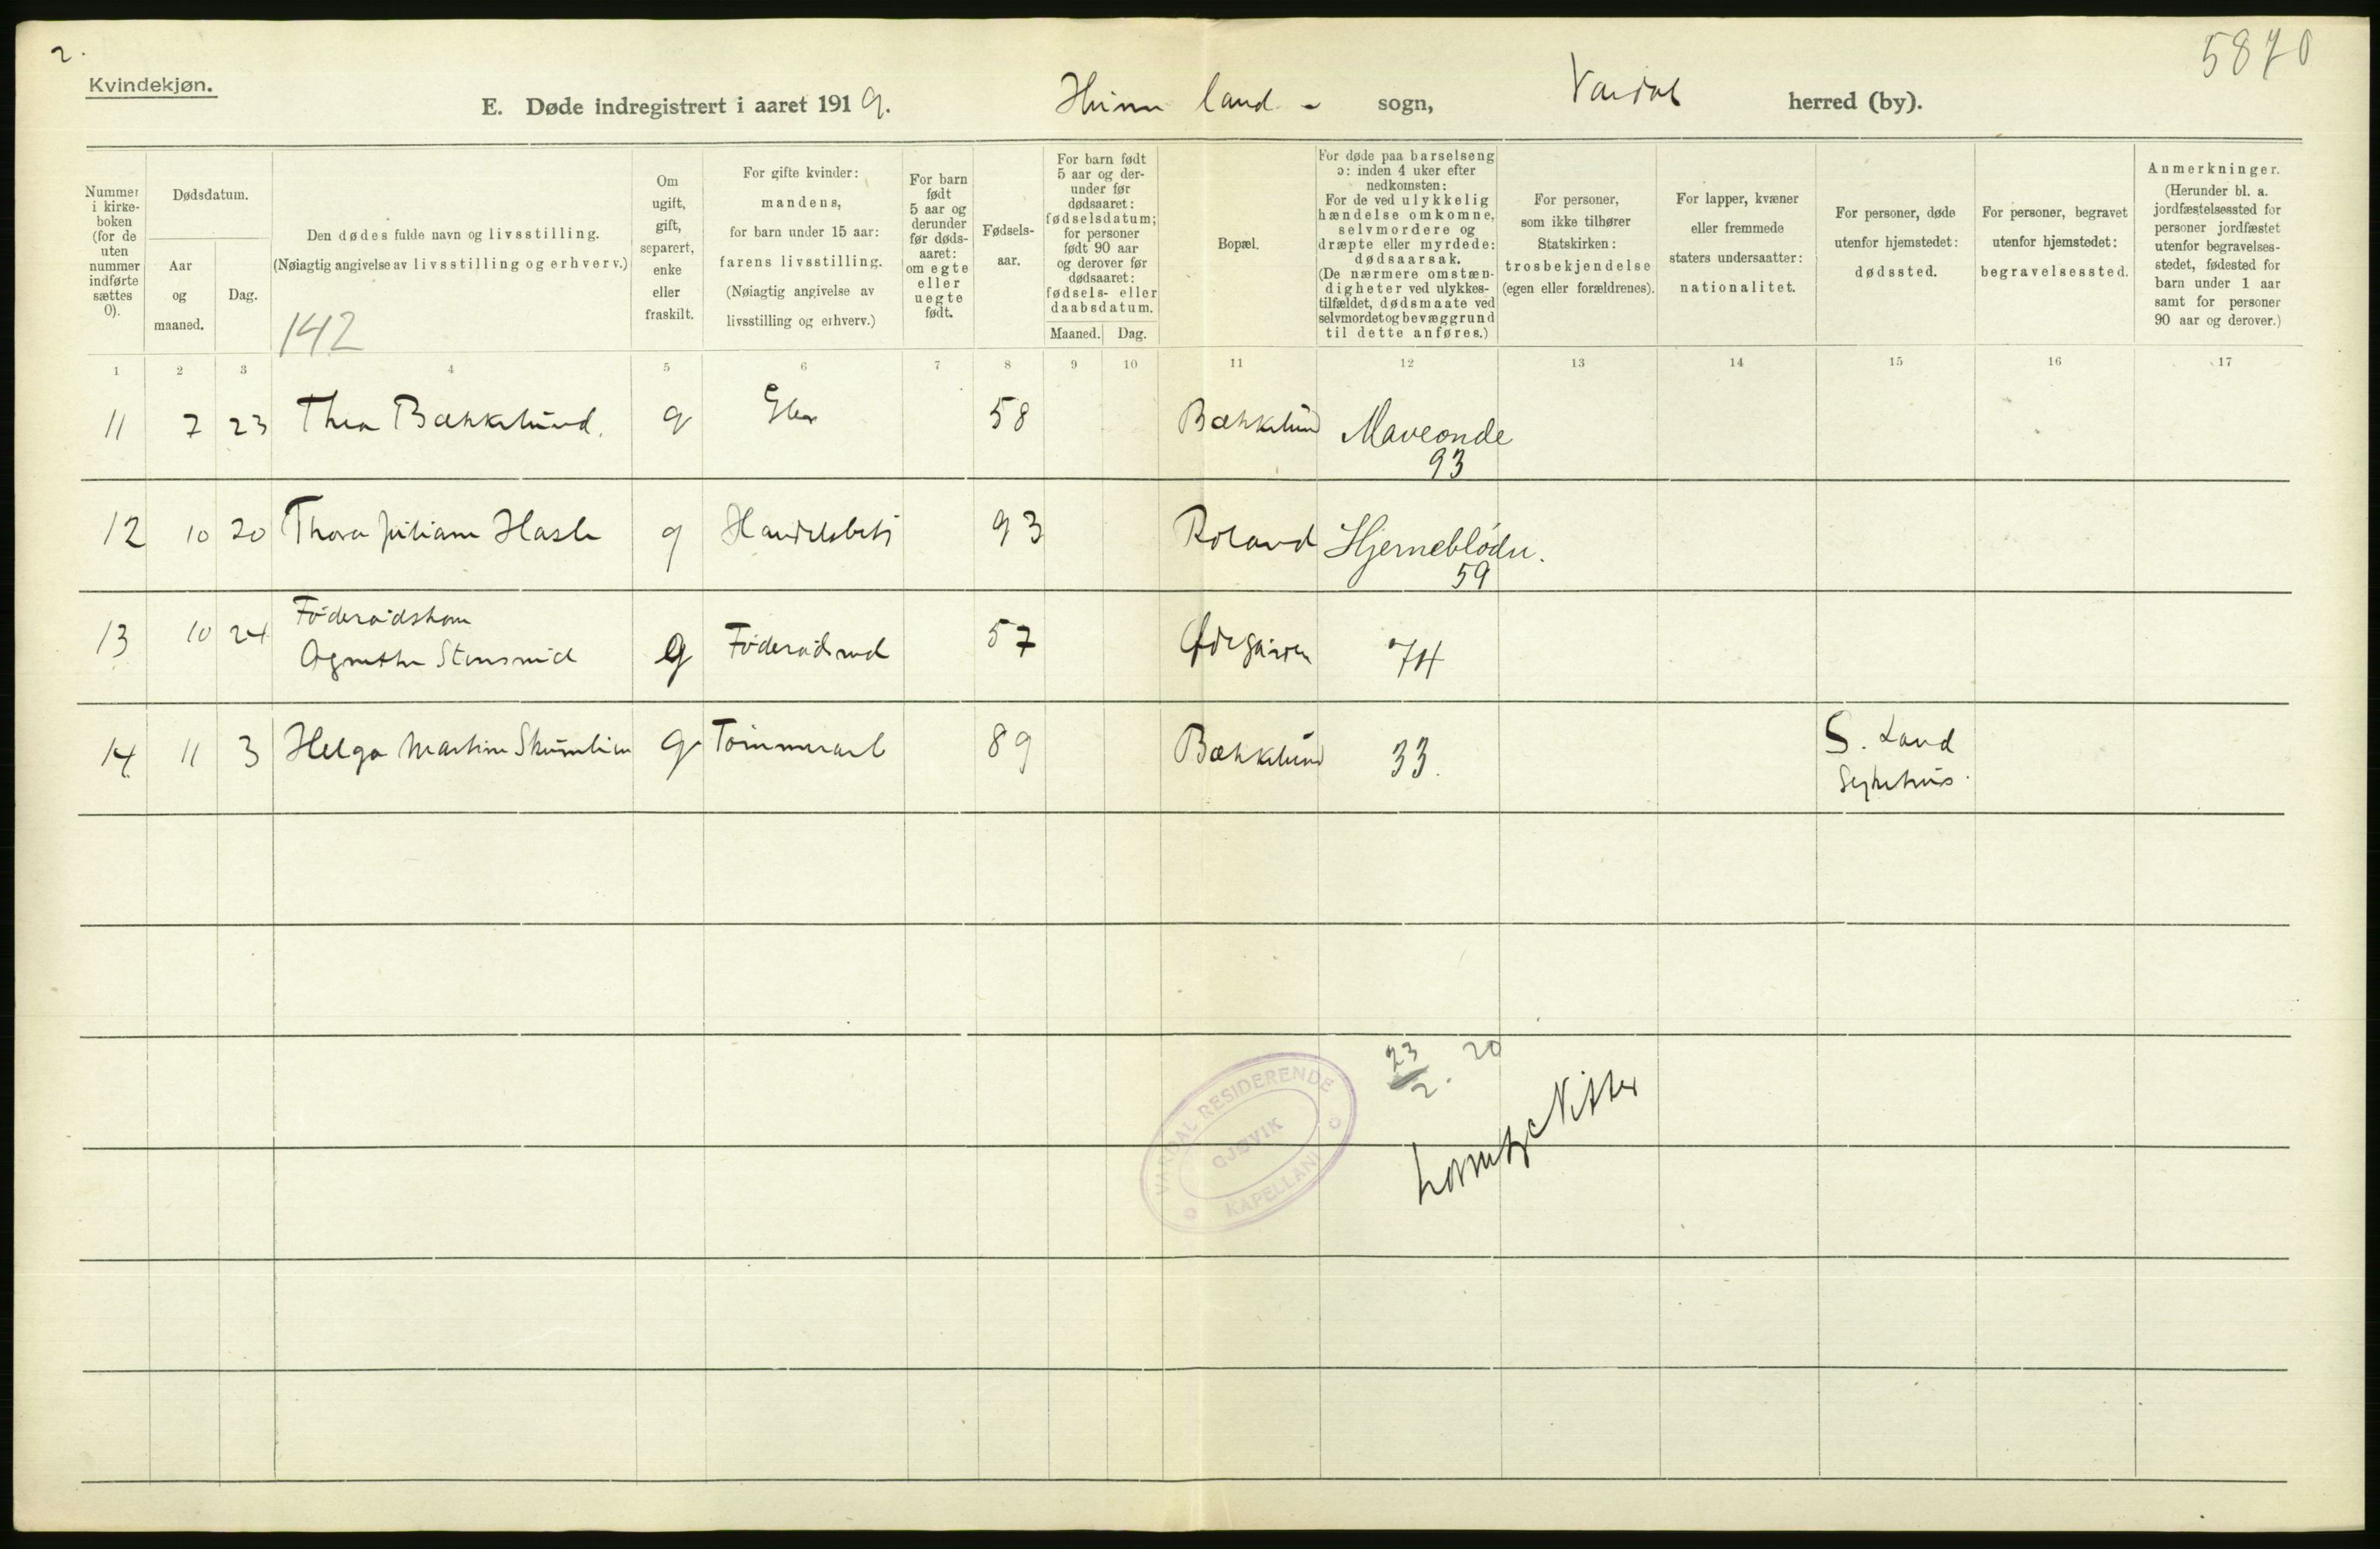 2.
5870
Kvindekjøn.
E. Døde indregistrert i aaret 1919. Hunn land - sogn, Vardal herred (by).
Nummer i kirke-boken (for de uten nummer indførte sættes 0).
Dødsdatum.
Aar og maaned.
Dag.
Den dødes fulde navn og livsstilling.
(Nøiagtig angivelse av livsstilling og erhverv.)
142
Om ugift, gift, separert, enke eller fraskilt.
For gifte kvinder:
mandens,
for barn under 15 aar:
farens livsstilling.
(Nøiagtig angivelse av
livsstilling og erhverv.)
For barn født 5 aar og derunder før døds-aaret: om egte eller uegte født.
Fødsels-aar.
For barn født 5 aar og der-under før dødsaaret: fødselsdatum; for personer født 90 aar og derover før dødsaaret: fødsels- eller daabsdatum.
Maaned. Dag.
Bopæl.
For døde paa barselseng
ɔ: inden 4 uker efter
nedkomsten:
For de ved ulykkelig
hændelse omkomne,
selvmordere og
dræpte eller myrdede:
dødsaarsak.
(De nærmere omstæn-
digheter ved ulykkes-
tilfældet, dødsmaate ved
selvmordet og bevæggrund
til dette anføres.)
For personer,
som ikke tilhører
Statskirken:
trosbekjendelse
(egen eller forældrenes).
For lapper, kvæner
eller fremmede
staters undersaatter:
nationalitet.
For personer, døde
utenfor hjemstedet:
dødssted.
For personer, begravet
utenfor hjemstedet:
begravelsessted.
Anmerkninger.
(Herunder bl. a.
jordfæstelsessted for
personer jordfæstet
utenfor begravelses-
stedet, fødested for
barn under 1 aar
samt for personer
90 aar og derover.)
1 2 3 4 5 6 7 8 9 10 11 12 13 14 15 16 17
11 7 23 Thea Bækkelund. g 58 Bækkelund Maveonde
93
12 10 20 Thora Juliane Hasle g Handelsbest 93 Roland Hjerneblødn.
59
13 10 24 Føderådskone
Agnethe Stensrud g Føderådsmd 57 Ødegården 74
14 11 3 Helga Martine Skumlien g Tømmerarb 89 Bækkelund 33.
S. Land
Sykehus.
23/2. 20
VARDAL RESIDERENDE
GJØVIK
KAPELLANI
Lorentz Nitter